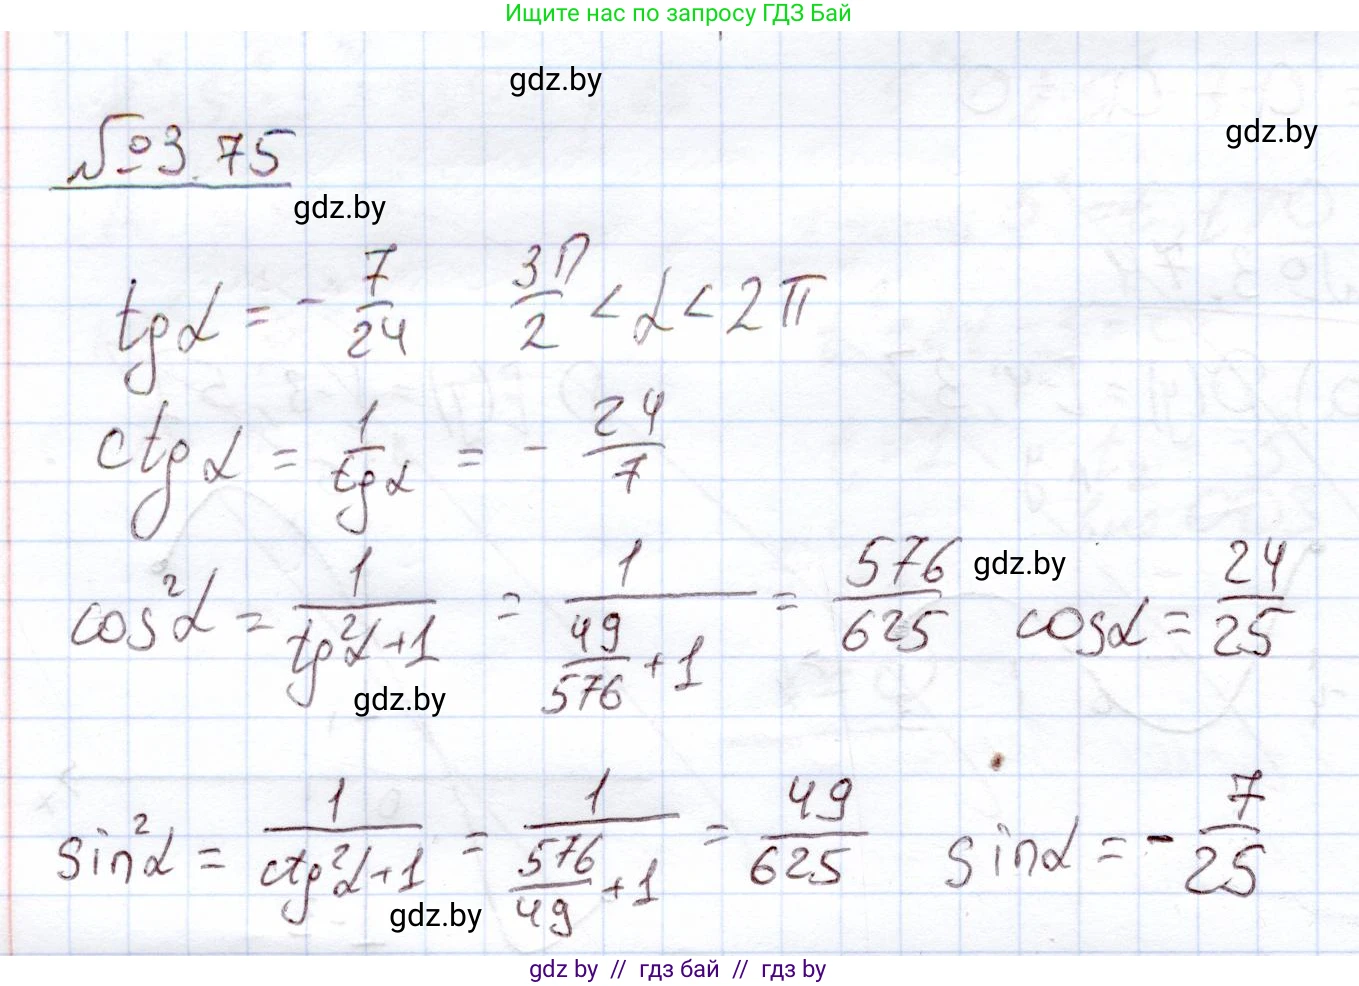 Ищите нас по запросу ГДЗ Бай
gdz.by
gdz.by
№3.75
gdz.by
tgα = - 7/24 3П/2 < α < 2π
ctgα = 1/tgα = - 24/7
cos²α = 1/(tg²α+1) = 1/(49/576 + 1) = 576/625 gdz.by cosα = 24/25
gdz.by
sin²α = 1/(ctg²α+1) = 1/(576/49 + 1) = 49/625 sinα = - 7/25
gdz.by
gdz by // гдз бай // гдз by